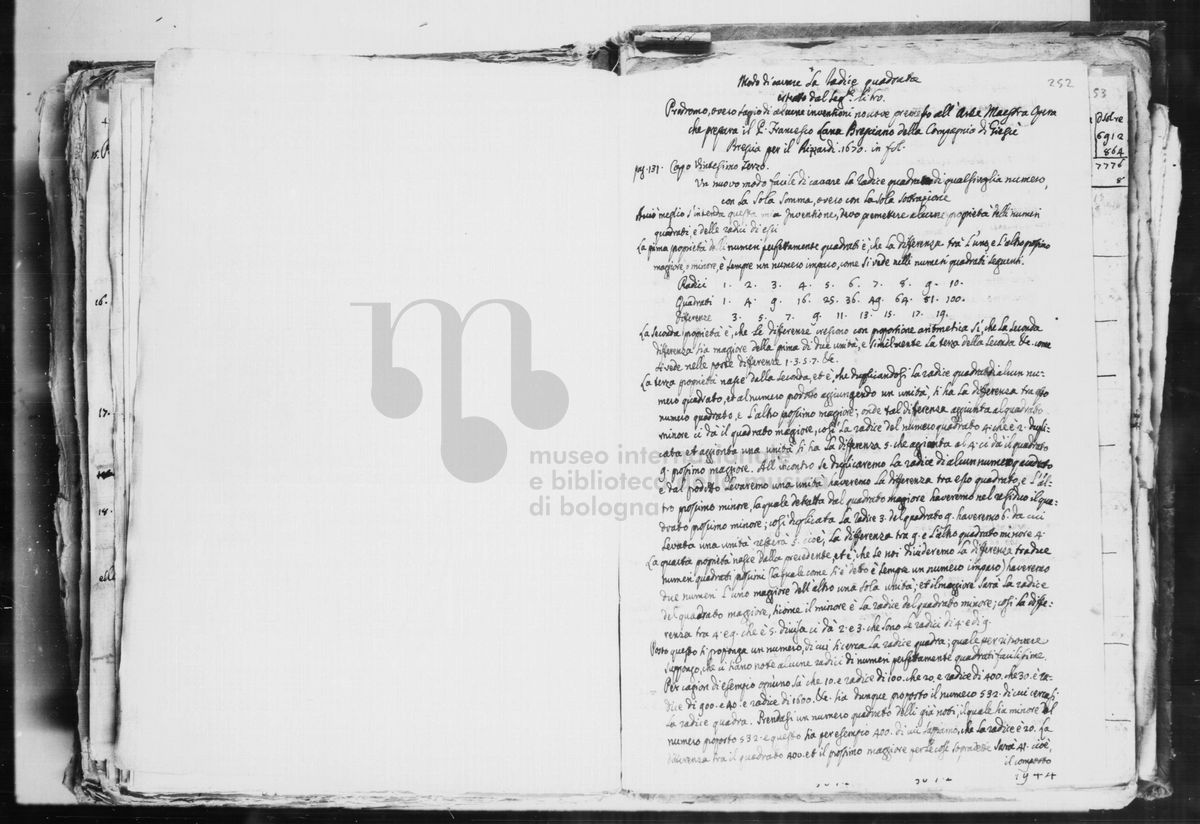 16.
17.
18.
elle
museo internazionale
e biblioteca della musica
di bologna
252
Modo di cavare La radice quadrata
estratto dal seg.te libro.
Prodromo, overo saggio di alcune inventioni nouove premesso all'Arte Maestra Opera
che prepara il P. Francesco Lana Bresciano della Compagnia di Giesù
Brescia per il Rizzardi. 1670. in fol.
pag. 131. Capo Vintesimo Terzo.
Un nuovo modo facile di cavare La radice quadrata di qualsivoglia numero,
con La Sola Somma, overo con La Sola Sottrazione
meglio s'intenda questa mia Inventione, devo premettere alcune proprietà delli numeri
quadrati, e delle radici di essi
La prima proprietà delli numeri perfettamente quadrati è, che La differenza trà L'uno, e L'altro prossimo
maggiore, o minore, è sempre un numero imparo, come si vede nelli numeri quadrati seguenti.
Radici 1. 2. 3. 4. 5. 6. 7. 8. 9. 10.
Quadrati 1. 4. 9. 16. 25. 36. 49. 64. 81. 100.
Differenze 3. 5. 7. 9. 11. 13. 15. 17. 19.
La seconda proprietà è, che Le differenze crescono con proportione aritmetica sì, che La seconda
differenza sia maggiore della prima di due unità, e similmente La terza della seconda &c. come
si vede nelle poste differenze 1. 3. 5. 7. &c.
La terza proprietà nasce dalla seconda, et è, che duplicandosi La radice quadrata di alcun nu-
mero quadrato, et al numero prodotto aggiungendo un unità, si hà La differenza tra esso
numero quadrato, e L'altro prossimo maggiore; onde tal differenza aggiunta al quadrato
minore ci dà il quadrato maggiore, così La radice del numero quadrato 4. che è 2. dupli-
cata et aggionta una unità si hà La differenza 5. che aggionta al 4. ci dà il quadrato
9. prossimo maggiore. All'incontro se duplicaremo La radice di alcun numero quadrato
e dal prodotto Levaremo una unità haveremo La differenza tra esso quadrato, e L'al-
tro prossimo minore, La quale detratta dal quadrato magiore haveremo nel residuo il qua-
drato prossimo minore; così duplicata La radice 3. del quadrato 9. haveremo 6. da cui
Levata una unità resterà 5. cioè, La differenza trà 9. e L'altro quadrato minore 4.
La quarta proprietà nasce dalla precedente, et è, che se noi divideremo La differenza tra due
numeri quadrati prossimi (La quale come si è detto è sempre un numero imparo) haveremo
due numeri L'uno maggiore dell'altro una sola unità; et il maggiore sarà La radice
del quadrato maggiore, sicome il minore è La radice del quadrato minore; così La diffe-
renza tra 4. e 9. che è 5. divisa ci dà 2. e 3. che sono Le radici di 4. e di 9.
Posto questo si proponga un numero, di cui si cerca La radice quadra; quale per ritrovare
suppongo, che ci siano note alcune radici di numeri perfettamente quadrati facilissime.
Per cagion di esempio ogniuno sà che 10. è radice di 100. che 20. è radice di 400. che 30. è ra-
dice di 900. e 40. è radice di 1600. &c. sia dunque proposto il numero 532. di cui cercasi
La radice quadra. Prendasi un numero quadrato delli già noti, il quale sia minore del
numero proposto 532. e questo sia per esempio 400. di cui sappiamo, che La radice è 20. La
differenza tra il quadrato 400. et il prossimo maggiore per Le cose sopradette sarà 41. cioè,
il composto
1944
53
6912
864
7776
8